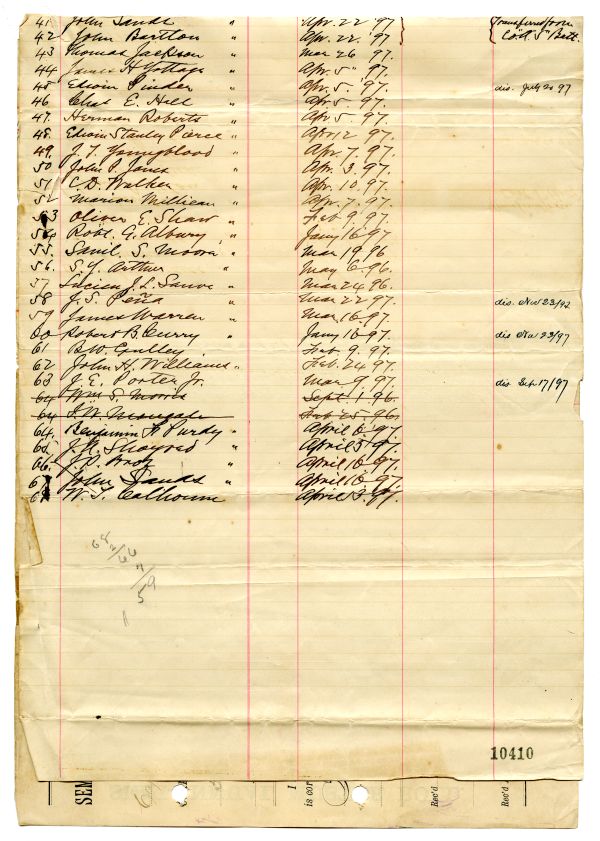 41 John Sands " Apr. 22 '97 Transferred from
42 John Bartlon " Apr. 22 '97 Co A. 5" Batt.
43 Thomas Jackson " Mar 26 '97.
44 James H " Apr. 5" '97.
45 Edwin Pinder " Apr. 5. '97. dis. July 20 97
46 Chas E. Hill " Apr. 5. 97.
47. Herman Roberts " Apr 5. 97.
48. Edwin Stanley Pierce " Apr 12 97.
49. J. T. Youngblood " Apr 7. 97.
50 John P. Jones " Apr. 3. 97.
51 C. D. Walker " Apr. 10. 97.
52 Marion Millican " Apr. 7. 97.
53 Oliver E. Shaw " Feb 9. 97.
54 Robt. G. Albury " Jany 16 97
55. Saml. S. Moore " Mar 19 96
56. S. Y. Arthur " May 6. 96.
57 Lucien J. L. " Mar 24 96.
58 J. S. Peña " Mar 22 97. dis. Nov 23/97
59 James Warren " Mar 16. 97.
60 Robert B. Curry " Jany 16 97. dis Nov 23/97
61 B. W. Gulley. " Feb. 9. 97.
62 John H. Williams " Feb. 24 97.
63 J. E. Porter Jr. " Mar 9 97. dis Feb 17/97
64 Wm S. Morris Sept. 1 96.
64 Feb 25 96.
64. Benjamin F. Purdy " April 6 97
65 J. R. " April 5 97.
66. J. P. " April 10 97.
67 John Sands " April 10 97.
68 W. T. Calhoun " April 13. 97.
10410
SEM
I
is cor
Rec'd
Rec'd